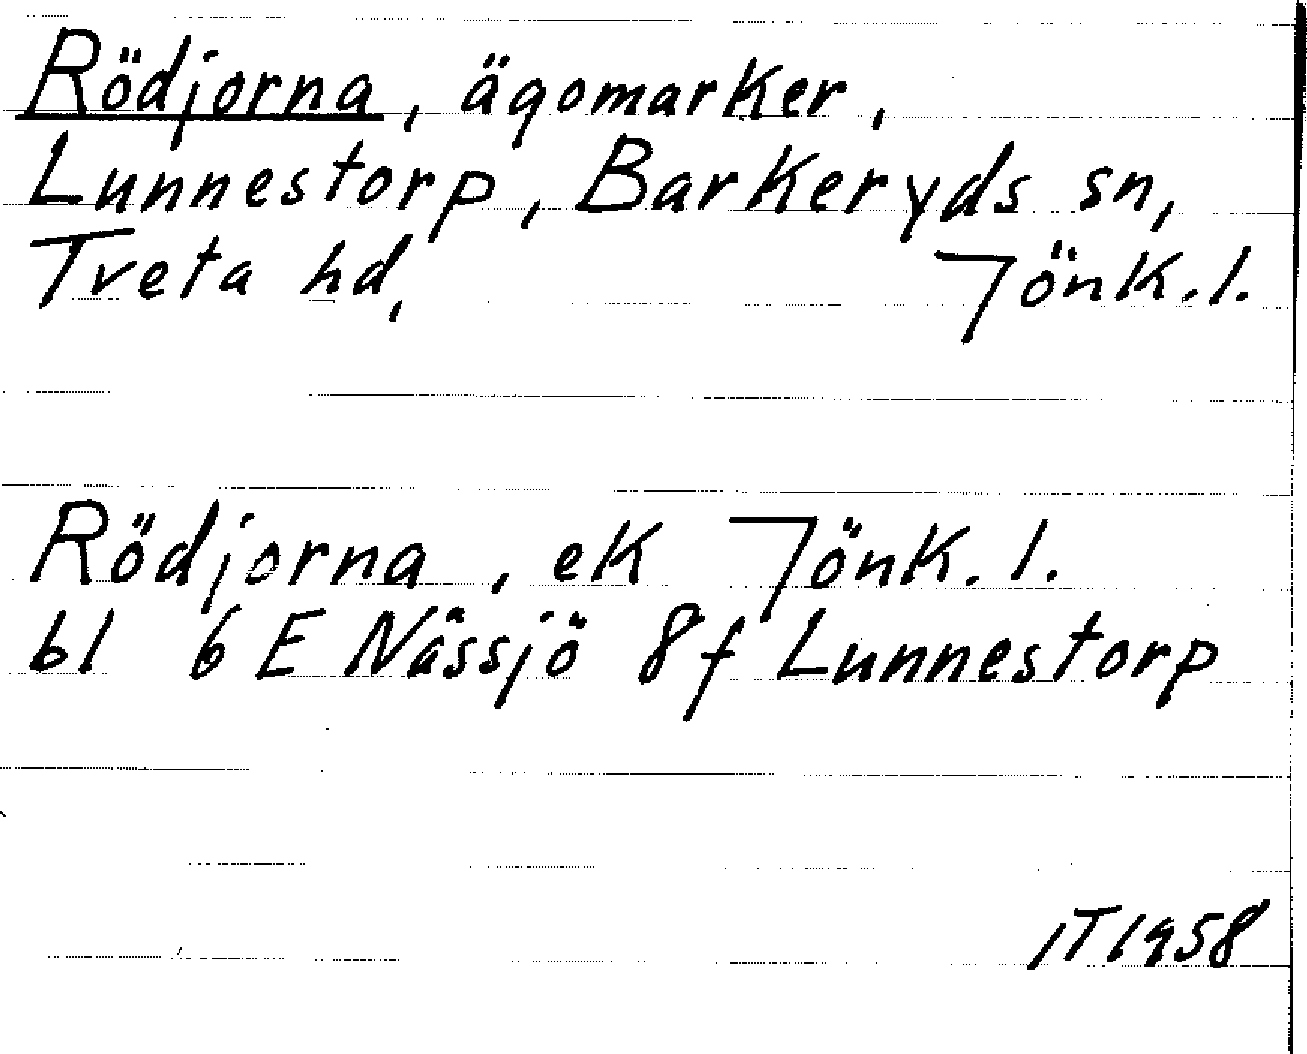 Rödjorna, ägomarker,
Lunnestorp, Barkeryds sn,
Tveta hd, Jönk.l.
Rödjorna, ek Jönk.l.
bl 6 E Nässjö 8f Lunnestorp
IT 1958